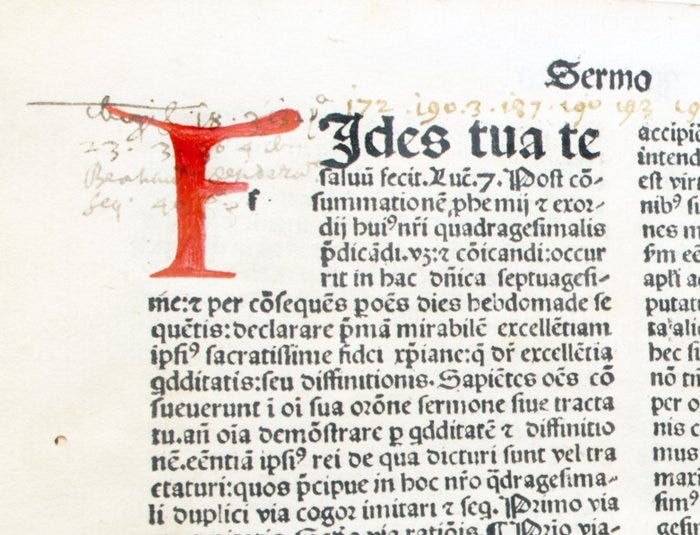 Sermo
172 · 190.3 · 187 · 190 193
F f
Jdes tua te
saluũ fecit. Luc̃.7. Post cõ-
summationẽ ꝓhemij ⁊ exor-
dij huiꝰ nr̃i quadragesimalis
p̃dicãdi.vꝫ:⁊ cõicandi:occur
rit in hac dñica septuagesi-
me:⁊ per cõsequẽs ꝑ oẽs dies hebdomade se
quẽtis:declarare p̃mã mirabilẽ excellẽtiam
ipsiꝰ sacratissime fidei xp̃iane:q̃ dr̃ excellẽtia
qdditatis:seu diffinitionis. Sapiẽtes oẽs cõ
sueuerunt ĩ oĩ sua or̃one sermone siue tracta
tu.añ oĩa demõstrare ꝑ qdditatẽ ⁊ diffinitio
nẽ.eẽntiã ipsiꝰ rei de qua dicturi sunt vel tra
ctaturi:quos p̃cipue in hoc nr̃o q̃dragesima-
li duplici via cogor imitari ⁊ seq̃. Primo via
accipi
intend
est virt
nibꝰ si
nes m
f̃m eẽ
apl̃i a
putat
ta alic
hec si
nõ tñ
per o
nis c
mus
maxi
simꝰ
gesi